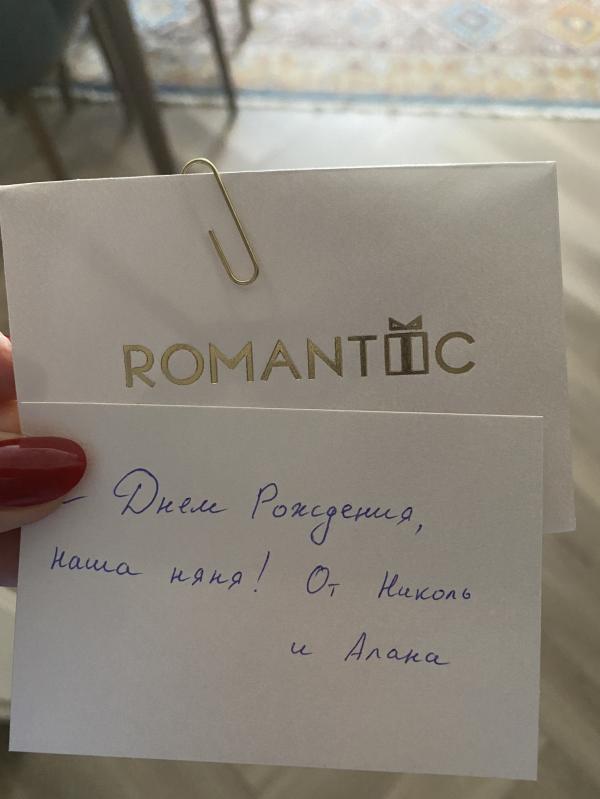 ROMANTIC
Днем Рождения,
наша няня! От Николь
и Алана